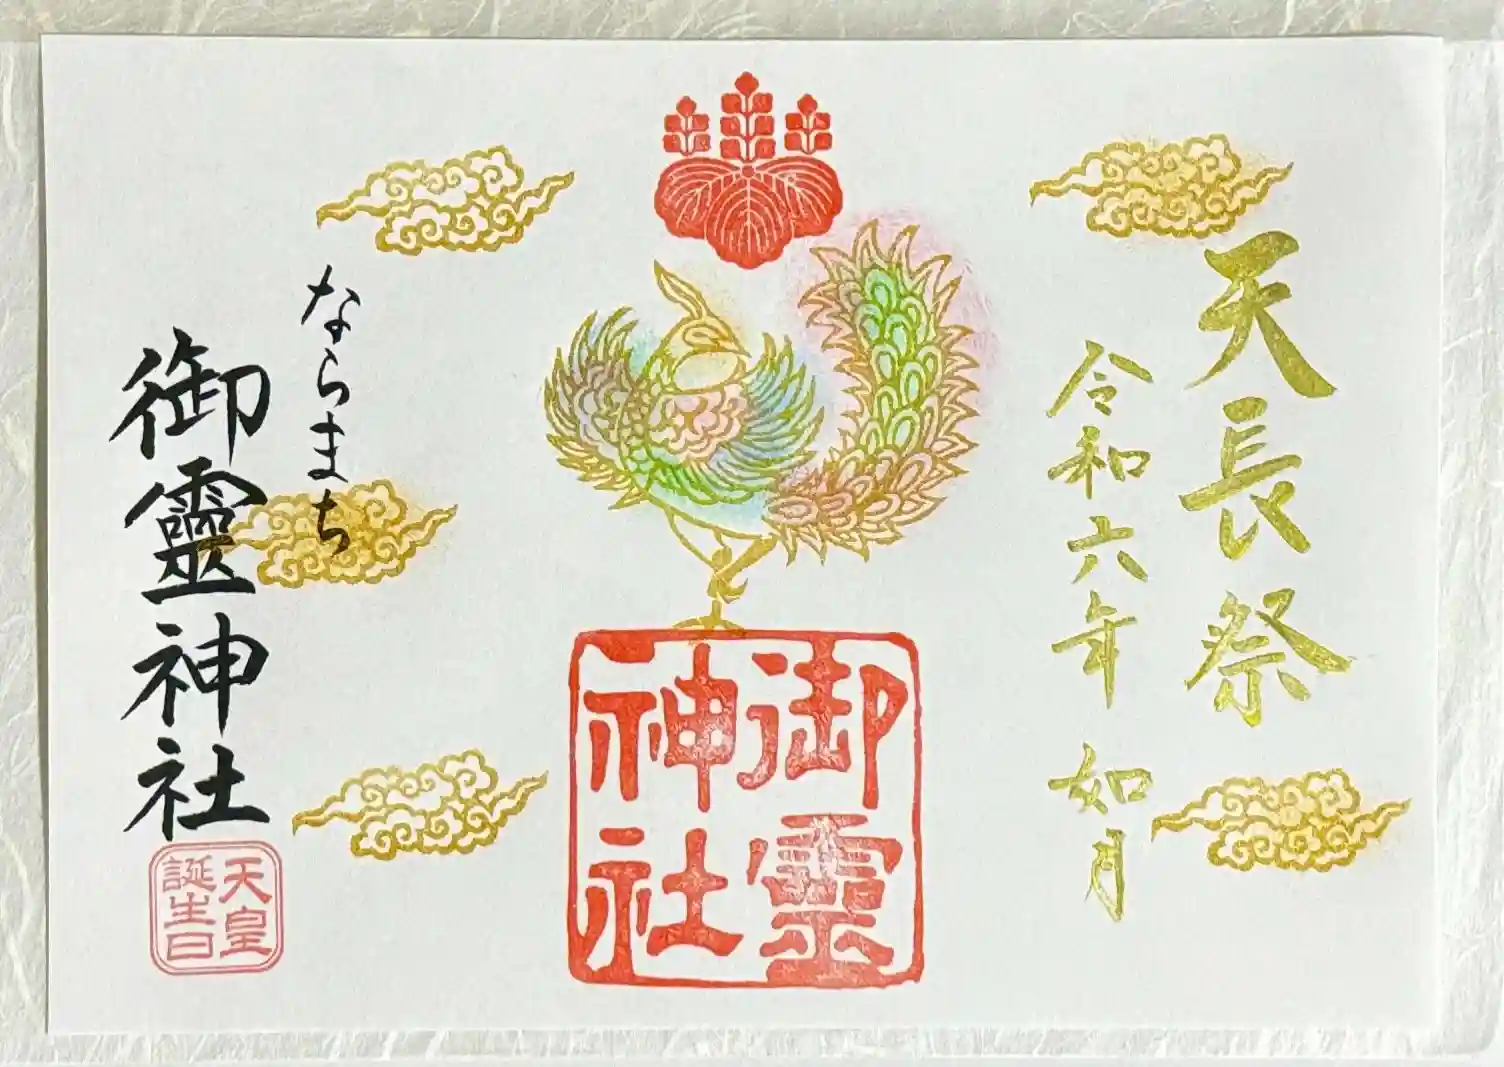 天長祭
令和六年 如月
御靈
神社
ならまち
御靈神社
天皇
誕生日